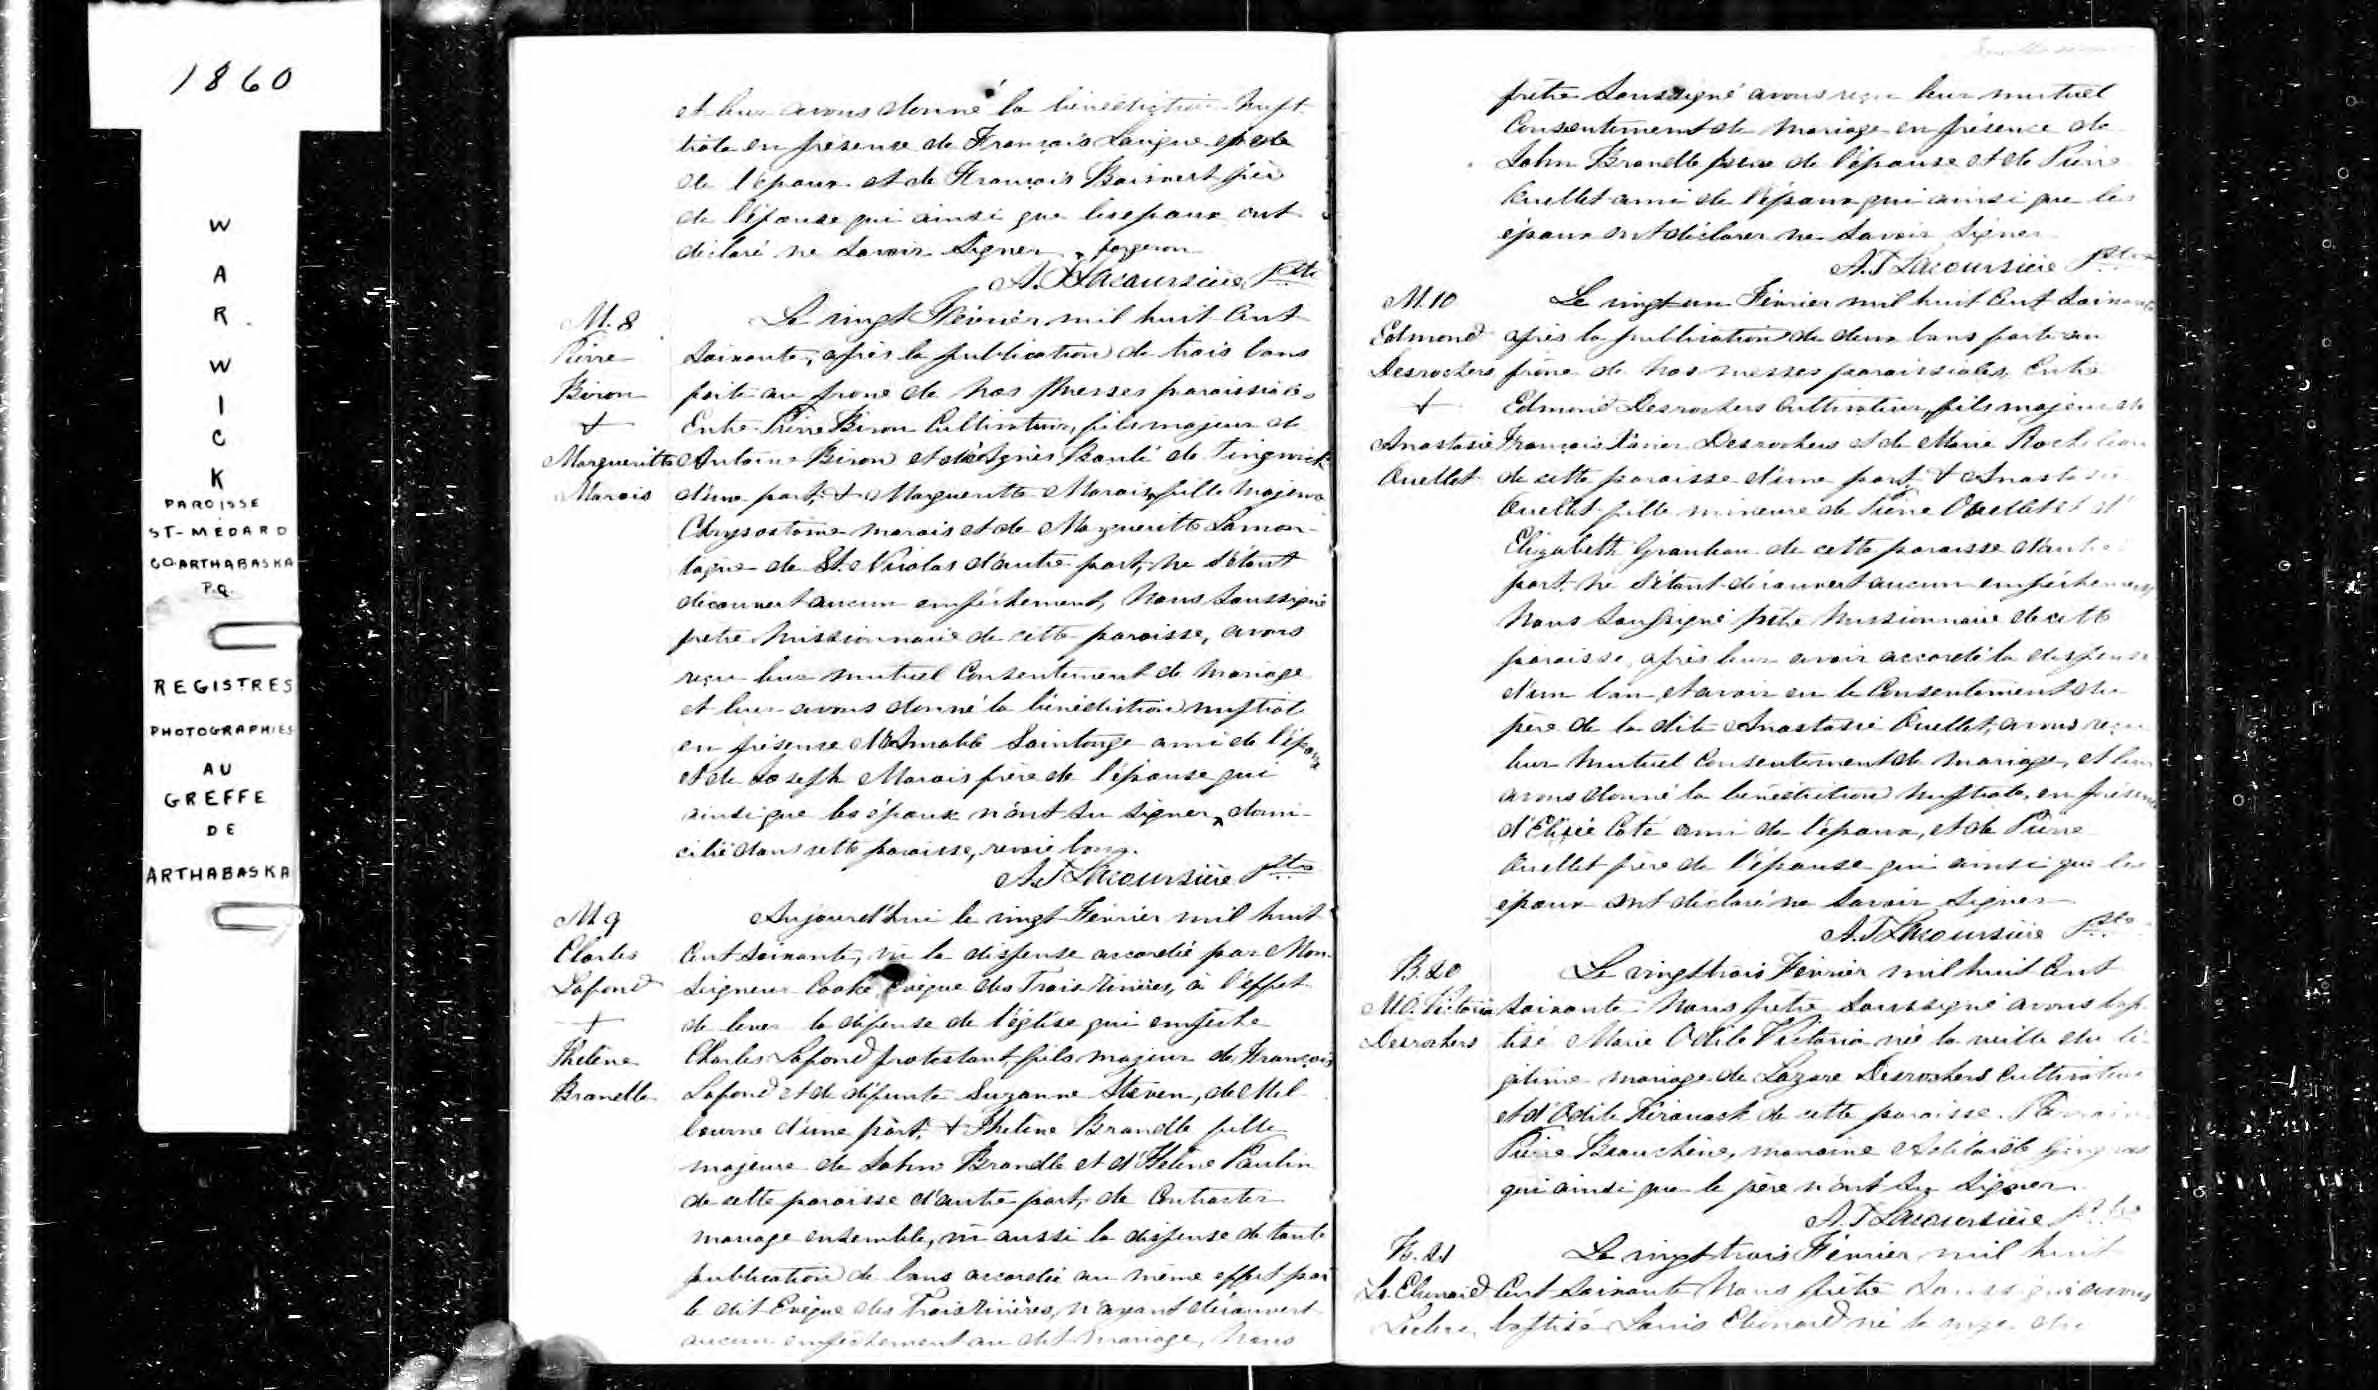 1860
W
A
R
W
I
C
K
PAROISSE
ST-MÉDARD
CO. ARTHABASKA
P.Q.
REGISTRES
PHOTOGRAPHIES
AU
GREFFE
DE
ARTHABASKA
et leur avons donné la bénédiction nupt
tiale en présence de François
de l'époux et de François Boisvert père
de l'épouse qui ainsi que les epoux ont
déclaré ne savoir signer, forgeron
A.T Lacoursière Ptre
M. 8
Pierre
Biron
+
Margueritte
Marois
Le vingt Février mil huit Cent
Soixante, après la publication de trois bans
faite au prone de nos Messes paroissiales
Entre Pierre Biron Cultivateur, fils majeur de
Antoine Biron et de Agnès de Tingwick
d'une part, + Margueritte Marois, fille majeure
Chrysostôme marois et de Margueritte Lamon-
tagne de St. Nicolas d'autre part, ne s'étant
découvert aucun empêchement, Nous Soussigné
prêtre missionnaire de cette paroisse, avons
reçu leur mutuel Consentement de mariage
et leur avons donné la bénédiction nuptiale
en présence d'Amable Saintonge ami de l'époux
et de Joseph Marois frère de l'épouse qui
ainsi que les époux n'ont su signer, domi-
cilié dans cette paroisse, renvoi bon.
A.T Lacoursière Ptre
M 9
Charles
Lafond
+
Phelène
Brandle
Aujourd'hui le vingt Février mil huit
Cent Soixante, vu la dispense accordée par Mon
Seigneur Cooke Evêque des Trois Rivières, à l'effet
de lever la défense de l'église qui empêche
Charles Lafond protestant, fils majeur de François
Lafond et de défunte Suzanne Steven, de Mel
bourne d'une part, + Phelène Brandle fille
majeure de John Brandle et d'Helène Paulin
de cette paroisse d'autre part, de Contracter
mariage ensemble, vu aussi la dispense de toute
publication de bans accordée au même effet par
le dit Evêque des Trois Rivières, n'ayant découvert
aucun empêchement au dit mariage, Nous
prêtre Soussigné avons reçu leur mutuel
Consentement de mariage en présence de
John Brandle père de l'épouse et de Pierre
Ouellet ami de l'époux qui ainsi que les
époux ont déclarer ne savoir signer
A.T Lacoursière Ptre
M. 10
Edmond
Desrochers
+
Anastasie
Ouellet
Le vingt un Février mil huit Cent Soixante
après la publication de deux bans faite au
prône de nos messes paroissiales, Entre
Edmond Desrochers Cultivateur, fils majeur de
François Xavier Desrochers et de Marie Rocheleau
de cette paroisse d'une part, + Anastasie
Ouellet fille mineure de Pierre Ouellet et d'
Elizabeth de cette paroisse d'autre
part, ne s'étant découvert aucun empêchement
Nous Soussigné prêtre missionnaire de cette
paroisse, après leur avoir accordé la dispense
d'un ban, et avoir eu le Consentement du
père de la dite Anastasie Ouellet, avons reçu
leur mutuel Consentement de mariage, et leur
avons donné la bénédiction nuptiale, en présence
d'Elizée Coté ami de l'époux, et de Pierre
Ouellet père de l'épouse qui ainsi que les
époux ont déclaré ne savoir signer
A.T Lacoursière Ptre
B. 20
M.O. Victoria
Desrochers
Le vingt trois Février mil huit Cent
Soixante Nous prêtre Soussigné avons bap
tisé Marie Odile Victoria née la veille du lé
gitime mariage de Lazare Desrochers Cultivateur
et d'Odile de cette paroisse. Parrain
Pierre Beauchêne, marraine Adélaïde Gingras
qui ainsi que le père n'ont su signer
A.T Lacoursière Ptre
B. 21
Ls. Elzéard
Leclerc
Le vingt trois Février mil huit
Cent Soixante Nous prêtre Soussigné avons
baptisé Louis né le du